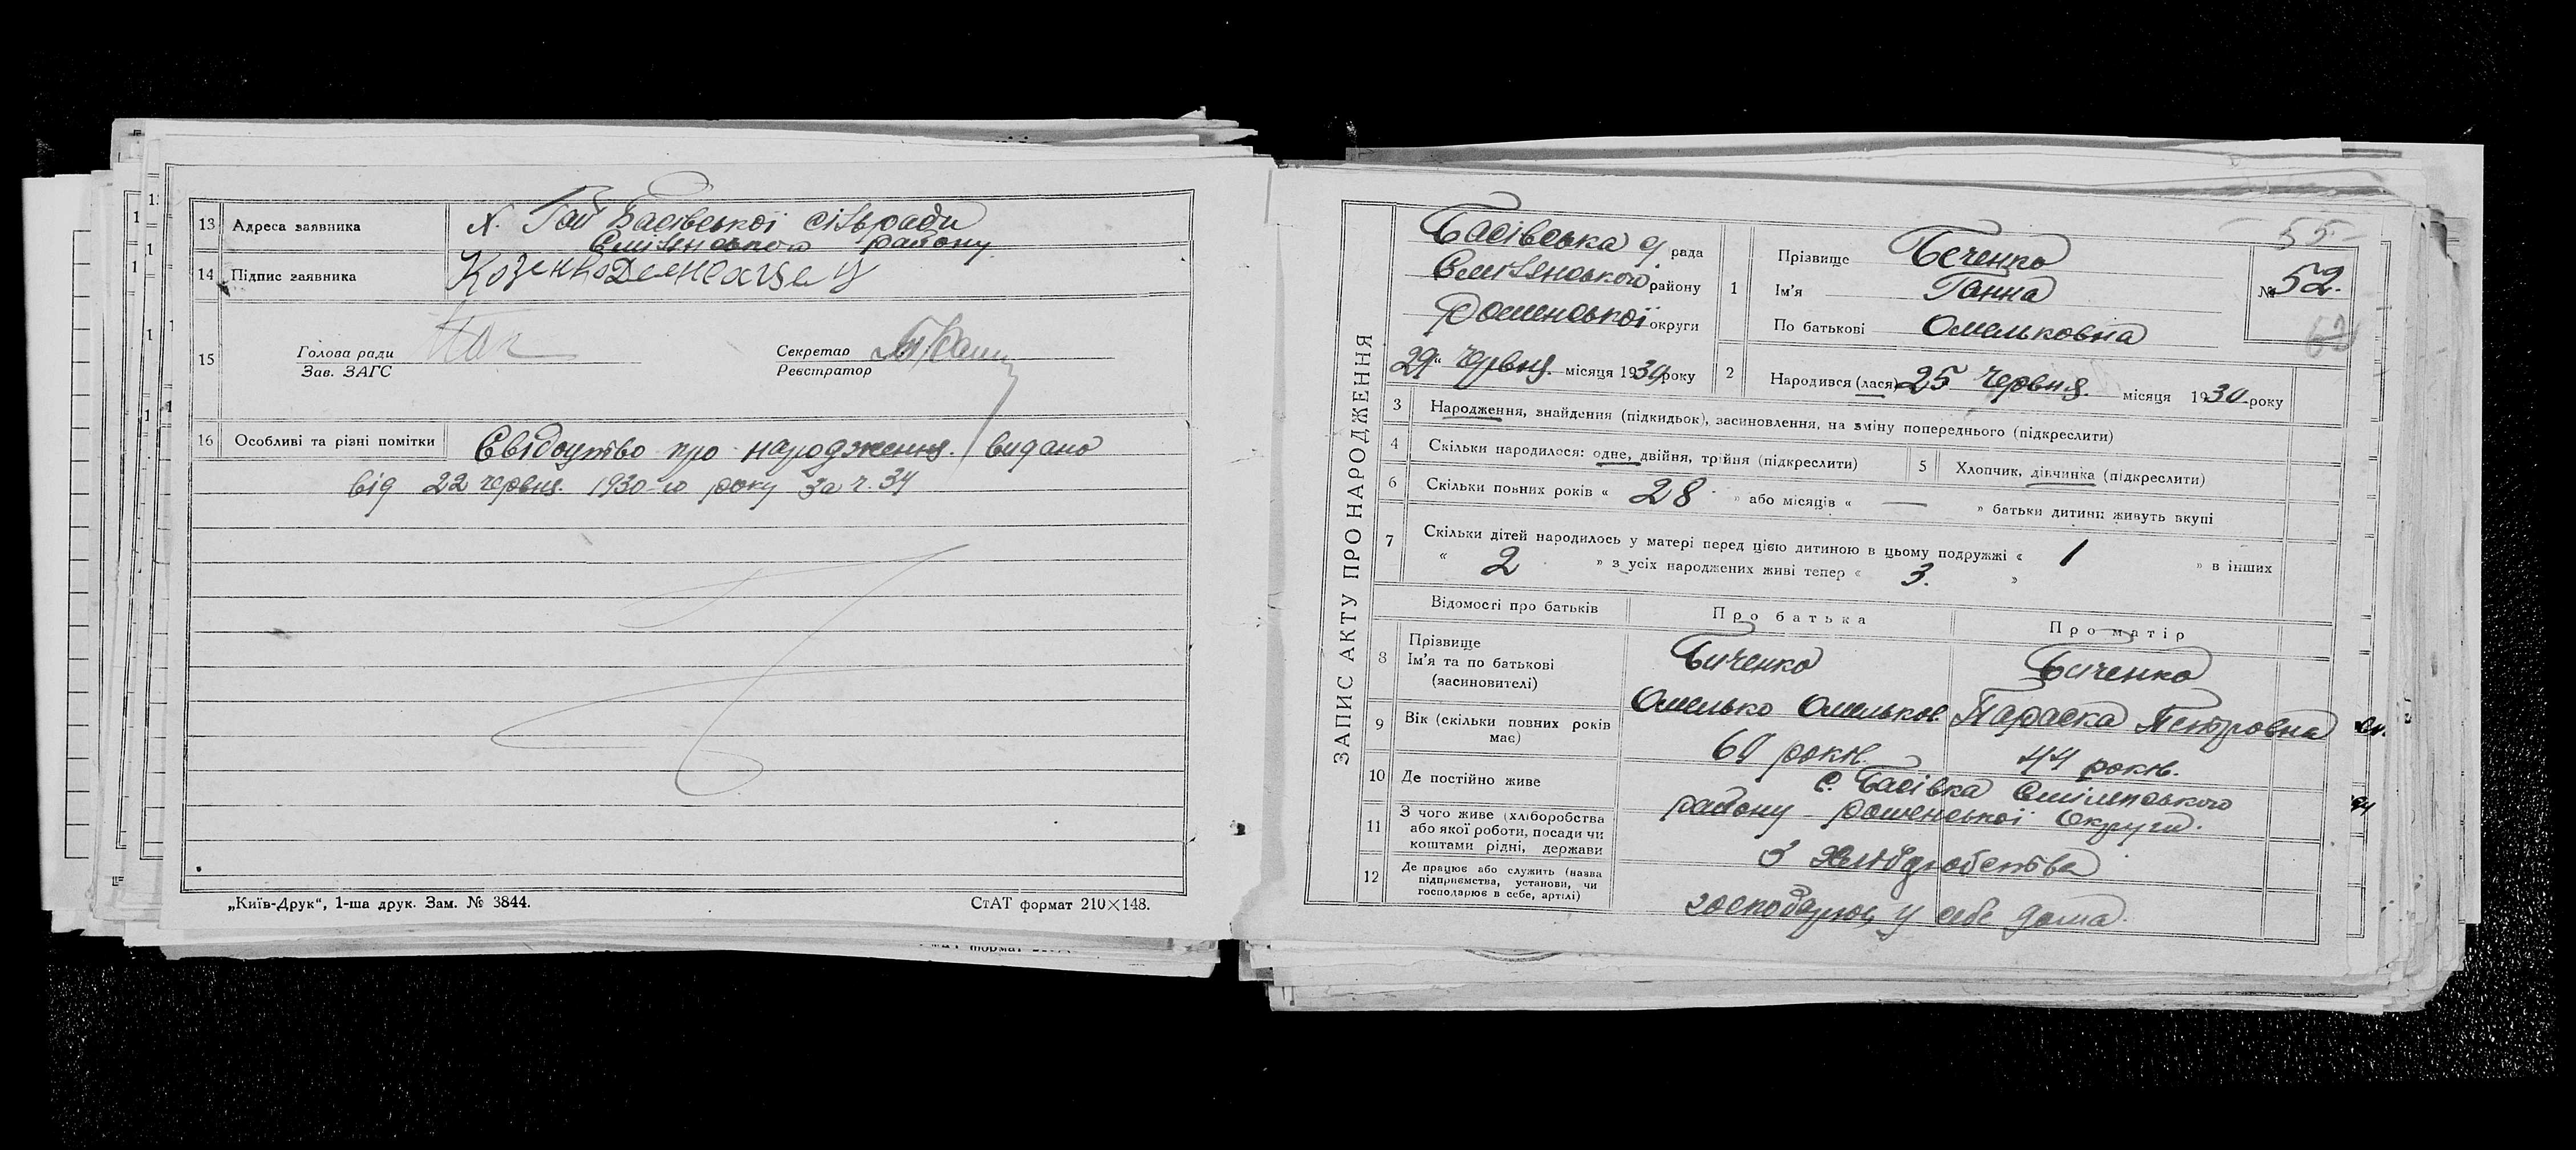 13 Адреса заявника х. Гай Басівської сільради
Смілянського району
14 Підпис заявника Козенко
15 Голова ради
Зав. ЗАГС
Секретар
Реєстратор
16 Особливі та різні помітки Свідоцтво про народження видано
від 22 червня 1930-го року за ч. 34
„Київ-Друк“, 1-ша друк. Зам. № 3844.
СтАТ формат 210×148.
ЗАПИС АКТУ ПРО НАРОДЖЕННЯ
55
Басівська с/ рада
Смілянського району
Роменської округи
29 червня місяця 1930 року
1 Прізвище Беченко
Ім'я Ганна
По батькові Омельковна
№ 52.
2 Народився (лася) 25 червня місяця 1930 року
3 Народження, знайдення (підкидьок), засиновлення, на зміну попереднього (підкреслити)
4 Скільки народилося: одне, двійня, трійня (підкреслити) 5 Хлопчик, дівчинка (підкреслити)
6 Скільки повних років « 28 » або місяців « — » батьки дитини живуть вкупі
7 Скільки дітей народилось у матері перед цією дитиною в цьому подружжі « 1 » в інших
« 2 » з усіх народжених живі тепер « 3. »
Відомості про батьків Про батька Про матір
8 Прізвище
Ім'я та по батькові
(засиновителі)
Биченко Биченко
Омелько Омельков. Параска Петровна
9 Вік (скільки повних років
має)
60 років. 44 років.
10 Де постійно живе с. Басівка Смілянського
району Роменської Округи.
11 З чого живе (хліборобства
або якої роботи, посади чи
коштами рідні, держави
з хліборобства
12 Де працює або служить (назва
підприємства, установи, чи
господарює в себе, артілі)
господарює у себе дома